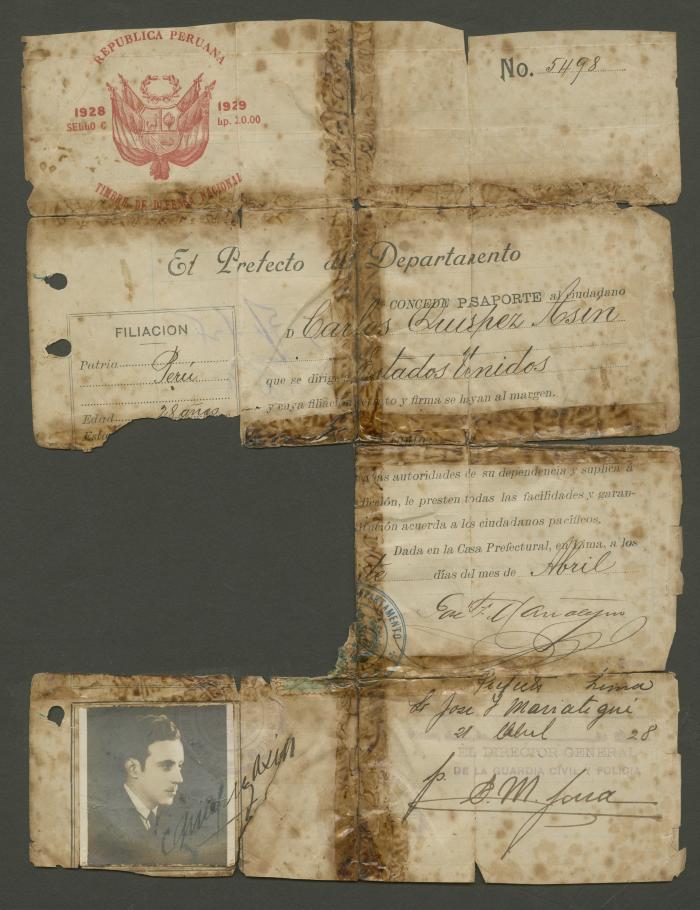 REPUBLICA PERUANA
1928 1929
SELLO C Lp. 10.00
TIMBRE DE DEFENSA NACIONAL
No. 5498
El Prefecto del Departamento
CONCEDE PASAPORTE al ciudadano
D Carlos Quispez Asin
que se dirige Estados Unidos
y cuya filiación, retrato y firma se hayan al margen.
FILIACION
Patria Perú
Edad 28 años
a las autoridades de su dependencia y suplica á
le presten todas las facilidades y garan-
acuerda a los ciudadanos pacíficos.
Dada en la Casa Prefectural, en Lima, a los
días del mes de Abril
DEPARTAMENTO
Lima
Jose F Mariategui
21 Abril 28
EL DIRECTOR GENERAL
DE LA GUARDIA CIVIL Y POLICIA
p.